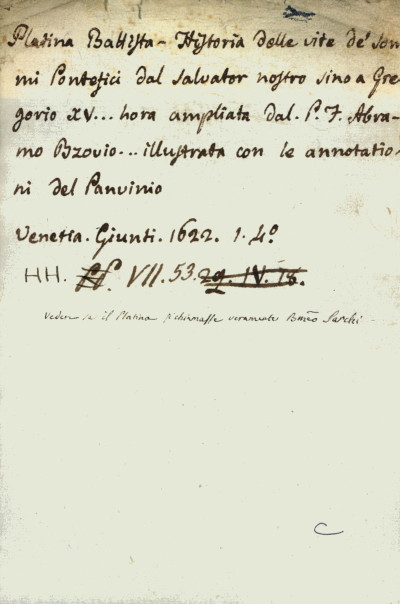 Platina Battista - Historia delle vite de' som
mi Pontefici dal Salvator nostro sino a Gre
gorio XV... hora ampliata dal. P. F. Abra-
mo Bzovio... illustrata con le annotatio-
ni del Panvinio
Venetia. Giunti. 1622. 1. 4º
HH. VII. 53. 29. IV. 18.
Vedere se il Platina si chiamasse veramente Sacchi
C